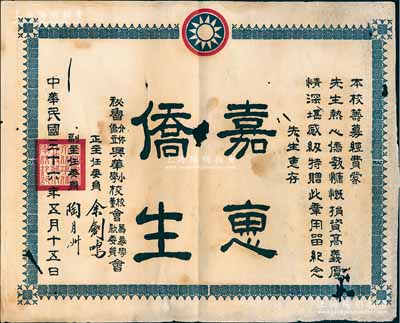 本校籌募經費蒙
先生熱心僑教慷慨捐資高義厚
情深堪感紉特贈此章用留紀念
先生惠存
嘉惠
僑生
秘魯
興華學校
正主任委員 余劍鳴
副主任委員 陶月州
中華民國三十六年五月十五日